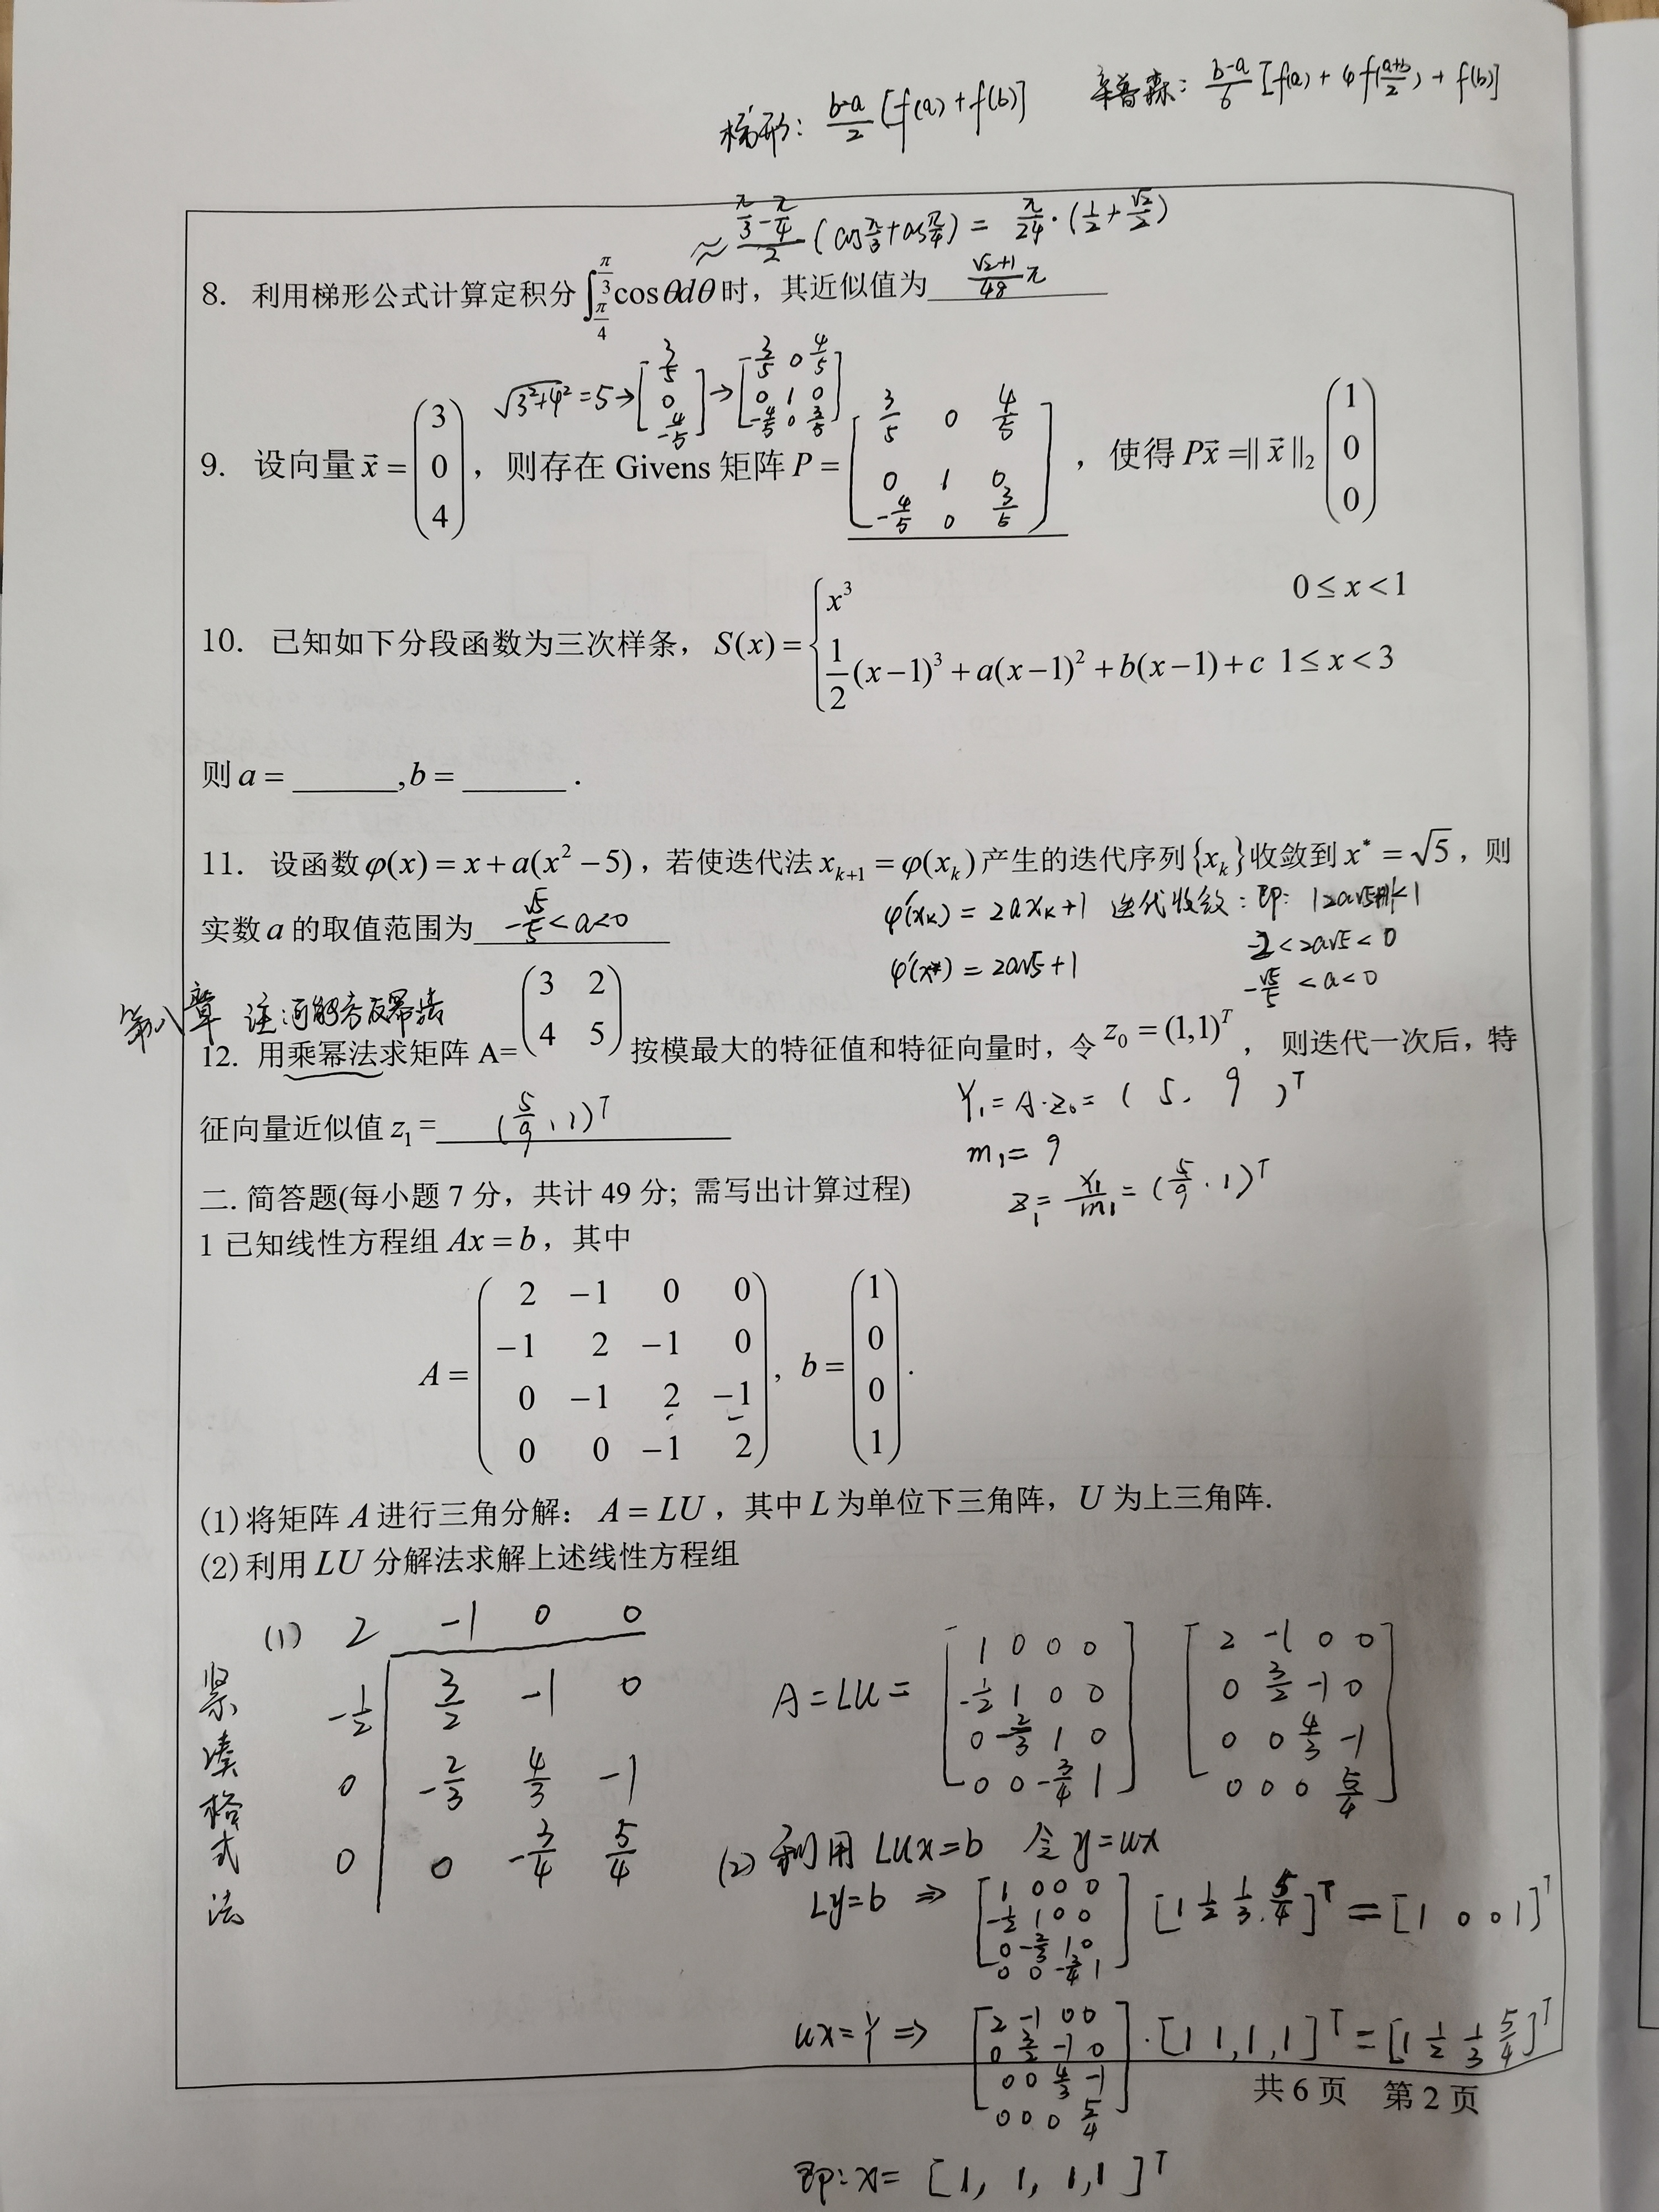 梯形: b-a/2 [f(a) + f(b)] 辛普森: b-a/6 [f(a) + 4f(a+b/2) + f(b)]
≈ (π/3 - π/4)/2 (cos π/3 + cos π/4) = π/24 · (1/2 + √2/2)
8. 利用梯形公式计算定积分 ∫_{π/4}^{π/3} cosθdθ 时，其近似值为 (√2+1)/48 π
√3²+4² = 5 → [-3/5 0 -4/5] → [-3/5 0 4/5; 0 1 0; -4/5 0 3/5]
9. 设向量 x⃗ = (3 0 4)，则存在 Givens 矩阵 P = [3/5 0 4/5; 0 1 0; -4/5 0 3/5]，使得 Px⃗ =‖ x⃗ ‖₂ (1 0 0)
10. 已知如下分段函数为三次样条，S(x) = { x³ 0 ≤ x < 1
1/2 (x−1)³ + a(x−1)² + b(x−1) + c 1 ≤ x < 3
则 a = ______, b = ______ .
11. 设函数 φ(x) = x + a(x² − 5)，若使迭代法 x_{k+1} = φ(x_k) 产生的迭代序列 {x_k} 收敛到 x* = √5，则
φ'(x_k) = 2a x_k + 1 迭代收敛: 即: |2a√5+1|<1
实数 a 的取值范围为 -√5/5 < a < 0
-2 < 2a√5 < 0
φ'(x*) = 2a√5 + 1
-√5/5 < a < 0
第八章 注:可能考反幂法
12. 用乘幂法求矩阵 A= (3 2; 4 5) 按模最大的特征值和特征向量时，令 z₀ = (1,1)^T， 则迭代一次后，特
Y₁ = A·z₀ = ( 5, 9 )^T
征向量近似值 z₁ = (5/9, 1)^T
m₁ = 9
z₁ = Y₁/m₁ = (5/9, 1)^T
二. 简答题(每小题 7 分，共计 49 分; 需写出计算过程)
1 已知线性方程组 Ax = b，其中
A = (2 −1 0 0; −1 2 −1 0; 0 −1 2 −1; 0 0 −1 2), b = (1 0 0 1).
(1) 将矩阵 A 进行三角分解： A = LU，其中 L 为单位下三角阵，U 为上三角阵.
(2) 利用 LU 分解法求解上述线性方程组
(1) 2 -1 0 0
-1/2 3/2 -1 0
0 -2/3 4/3 -1
0 0 -3/4 5/4
紧凑格式法
A = LU = [1 0 0 0; -1/2 1 0 0; 0 -2/3 1 0; 0 0 -3/4 1] [2 -1 0 0; 0 3/2 -1 0; 0 0 4/3 -1; 0 0 0 5/4]
(2) 利用 LUx = b 令 y = ux
Ly = b ⇒ [1 0 0 0; -1/2 1 0 0; 0 -2/3 1 0; 0 0 -3/4 1] [1 1/2 1/3, 5/4]^T = [1 0 0 1]^T
ux = Y ⇒ [2 -1 0 0; 0 3/2 -1 0; 0 0 4/3 -1; 0 0 0 5/4] · [1 1, 1, 1]^T = [1 1/2 1/3 5/4]^T
共 6 页 第 2 页
即: x = [1, 1, 1, 1]^T